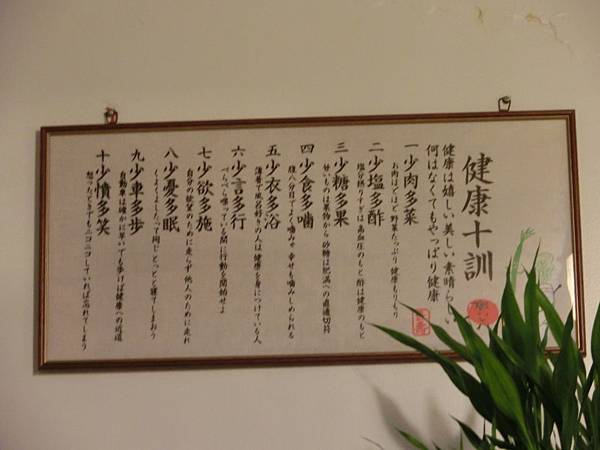 健康十訓
健康は嬉しい美しい素晴らしい
何はなくてもやっぱり健康
一 少肉多菜
お肉ほどほど野菜たっぷり健康もりもり
二 少塩多酢
塩分摂りすぎは高血圧のもと酢は健康のもと
三 少糖多果
甘いものは果物から砂糖は肥満への直通切符
四 少食多噛
腹八分目でよく噛みゃ幸せも噛みしめられる
五 少衣多浴
薄着で風呂好きの人は健康を身につけている人
六 少言多行
べらべら喋っている間に行動を開始せよ
七 少欲多施
自分の欲望のために走らず他人のために走れ
八 少憂多眠
くよくよしたって同じとっとと寝てしまおう
九 少車多歩
自動車は確かに早いでも歩けば健康への近道
十 少憤多笑
怒ったときでもニコニコしていれば忘れてしまう